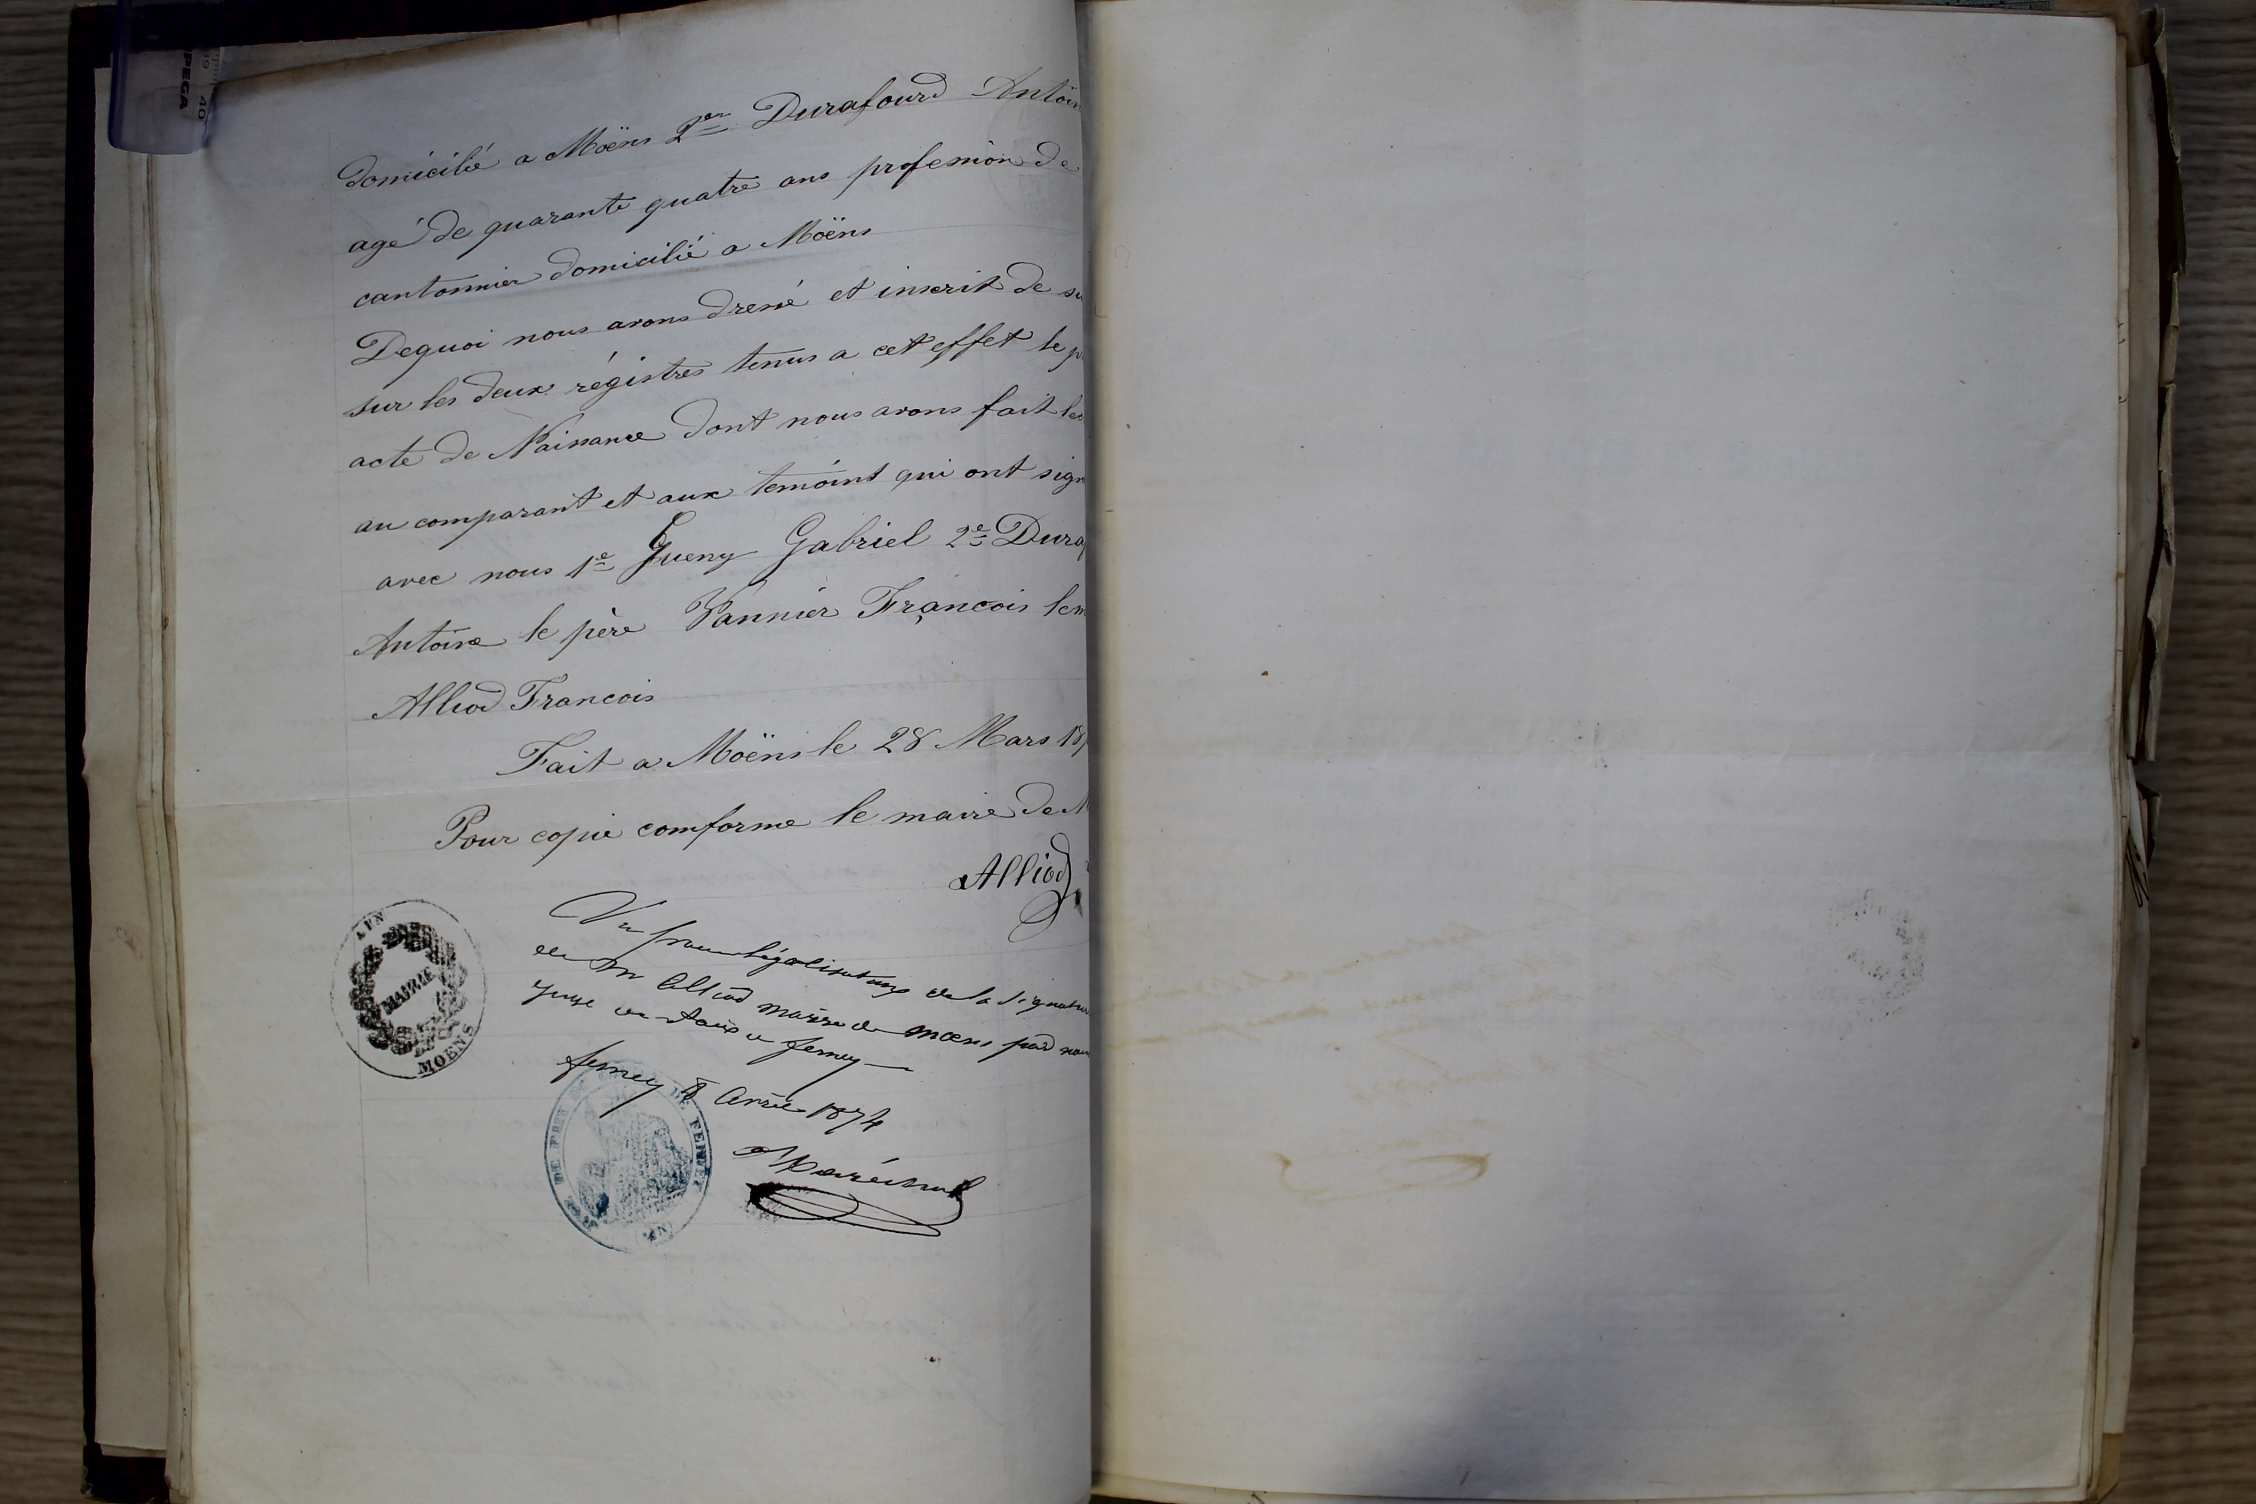 domicilié a Moëns 2en Durafourd Antoin
agé de quarante quatre ans profession de
cantonnier domicilié a Moëns
Dequoi nous avons dressé et inscrit de su
sur les deux régistres tenus a cet effet le p
acte de Naissance dont nous avons fait lec
au comparant et aux temoint qui ont sign
avec nous 1e Gueny Gabriel 2e Duraf
Antoine le père Vannier François le m
Alliod Francois
Fait a Moëns le 28 Mars 18
Pour copie comforme le maire de M
Alliod
Vu pour légalisation de la signature
de Mr Alliod maire de Moens par nous
juge de Paix a ferney
ferney 8 Avril 1874
AIN
MAIRIE
MOENS
DE FERNEY
(AIN)
PEGA